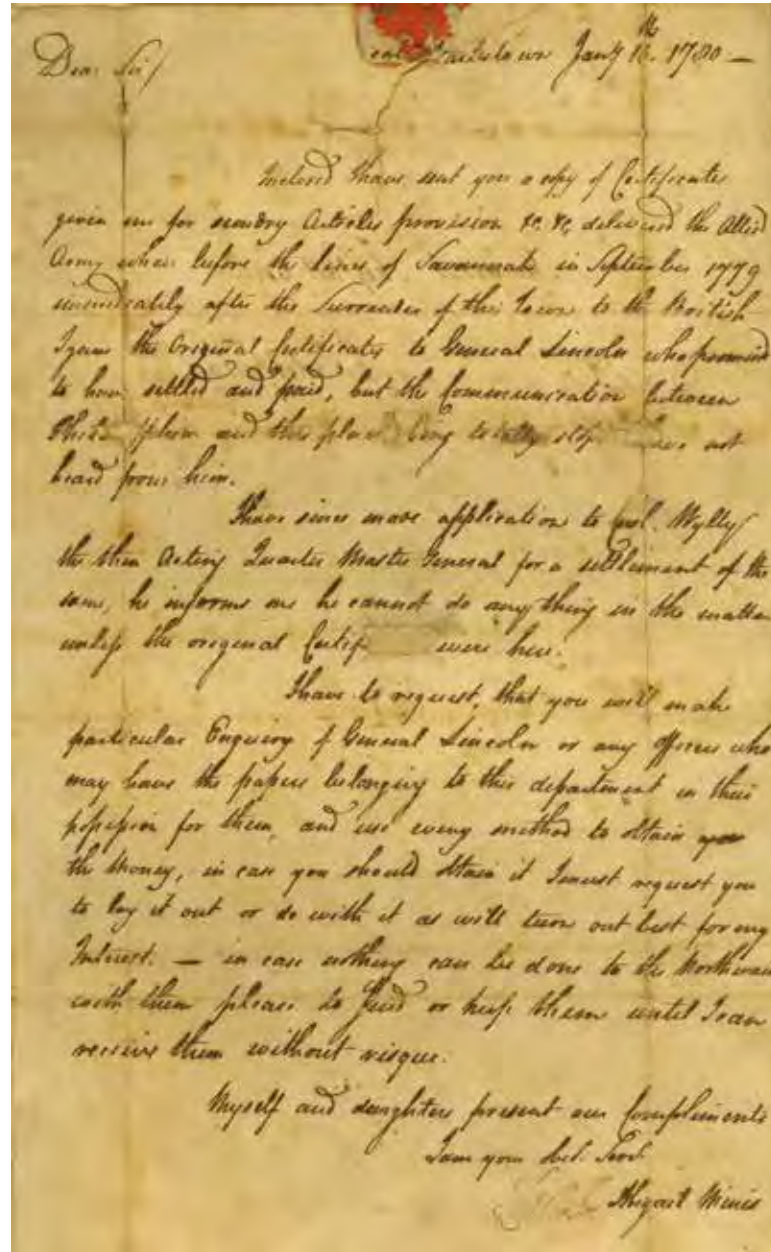 Dear Sir/ Charlestown Jany 16th. 1780 —
Inclosed I have sent you a copy of Certificates
given me for sundry Articles provision &c. &c, delivered the Allied
Army when before the lines of Savannah in September 1779
immediately after the Surrender of this Town to the British
I gave the Original Certificates to General Lincoln who promised
to have settled and paid, but the Communication between
and this place being totally have not
heard from him.
I have since made application to Coll. Wylly
the then Acting Quarter Master General for a settlement of the
same, he informs me he cannot do any thing in the matter
unless the original Certif were here.
I have to request, that you will make
particular Enquiry of General Lincoln or any officer who
may have the papers belonging to this department in their
possession for them, and use every method to obtain
the Money, in case you should obtain it I must request you
to lay it out or do with it as will turn out best for my
Interest. — in case nothing can be done to the Northward
with them please to send or keep them until I can
receive them without risque.
Myself and daughters present our Compliments
I am your Obt. Servt.
Abigail Minis